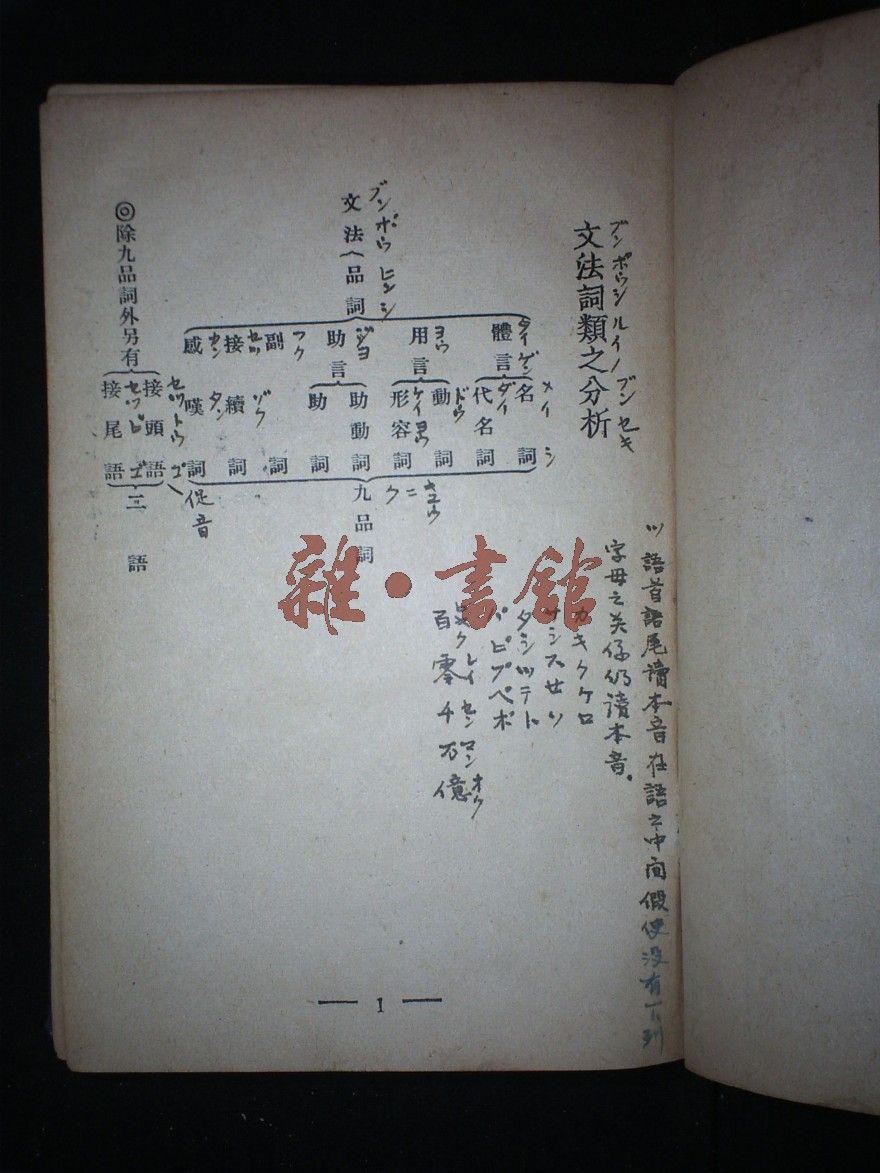 文法詞類之分析
ブンポウシルイノブンセキ
文法︷品詞
ブンポウヒンシ
體言
タイゲン
名詞
メイシ
代名詞
ダイ
用言
ヨウ
動詞
ドウ
形容詞
ケイヨウ
助言
ジヨ
助動詞
助詞
副詞
フク
接續詞
セツゾク
感嘆詞
カンタン
九品詞
キユウ
ク
促音
◎除九品詞外另有
接頭語
セツトウゴ
接尾語
セツビゴ
二語
ツ語首語尾讀本音在語之中間假使没有下列
字母之关係仍讀本音。
カキクケロ
サシスセソ
タシツテト
パピプペポ
百零千万億
レイセンマンオク
雜·書館
— 1 —